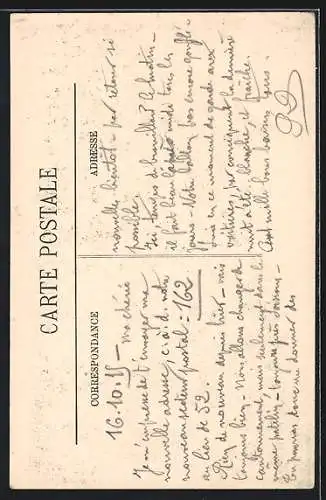 CARTE POSTALE
CORRESPONDANCE
ADRESSE
16.10.15 – Ma chérie
Je m'empresse de t'envoyer ma
nouvelle adresse, c.à.d. notre
nouveau secteur postal = 162
au lieu de 52.
Rien de nouveau depuis hier – vais
toujours bien – Nous allons changer de
cantonnement, mais seulement dans le
même patelin – toujours près
Tu pourras donc me donner des
nouvelles bientôt – par retour si
possible.
Ici temps de brouillard le matin –
il fait beau après midi tous les
jours – Notre ballon pas encore gonflé –
Suis en ce moment de garde aux
voitures, par conséquent la dernière
nuit a été blanche et fraîche.
Cent mille bons baisers